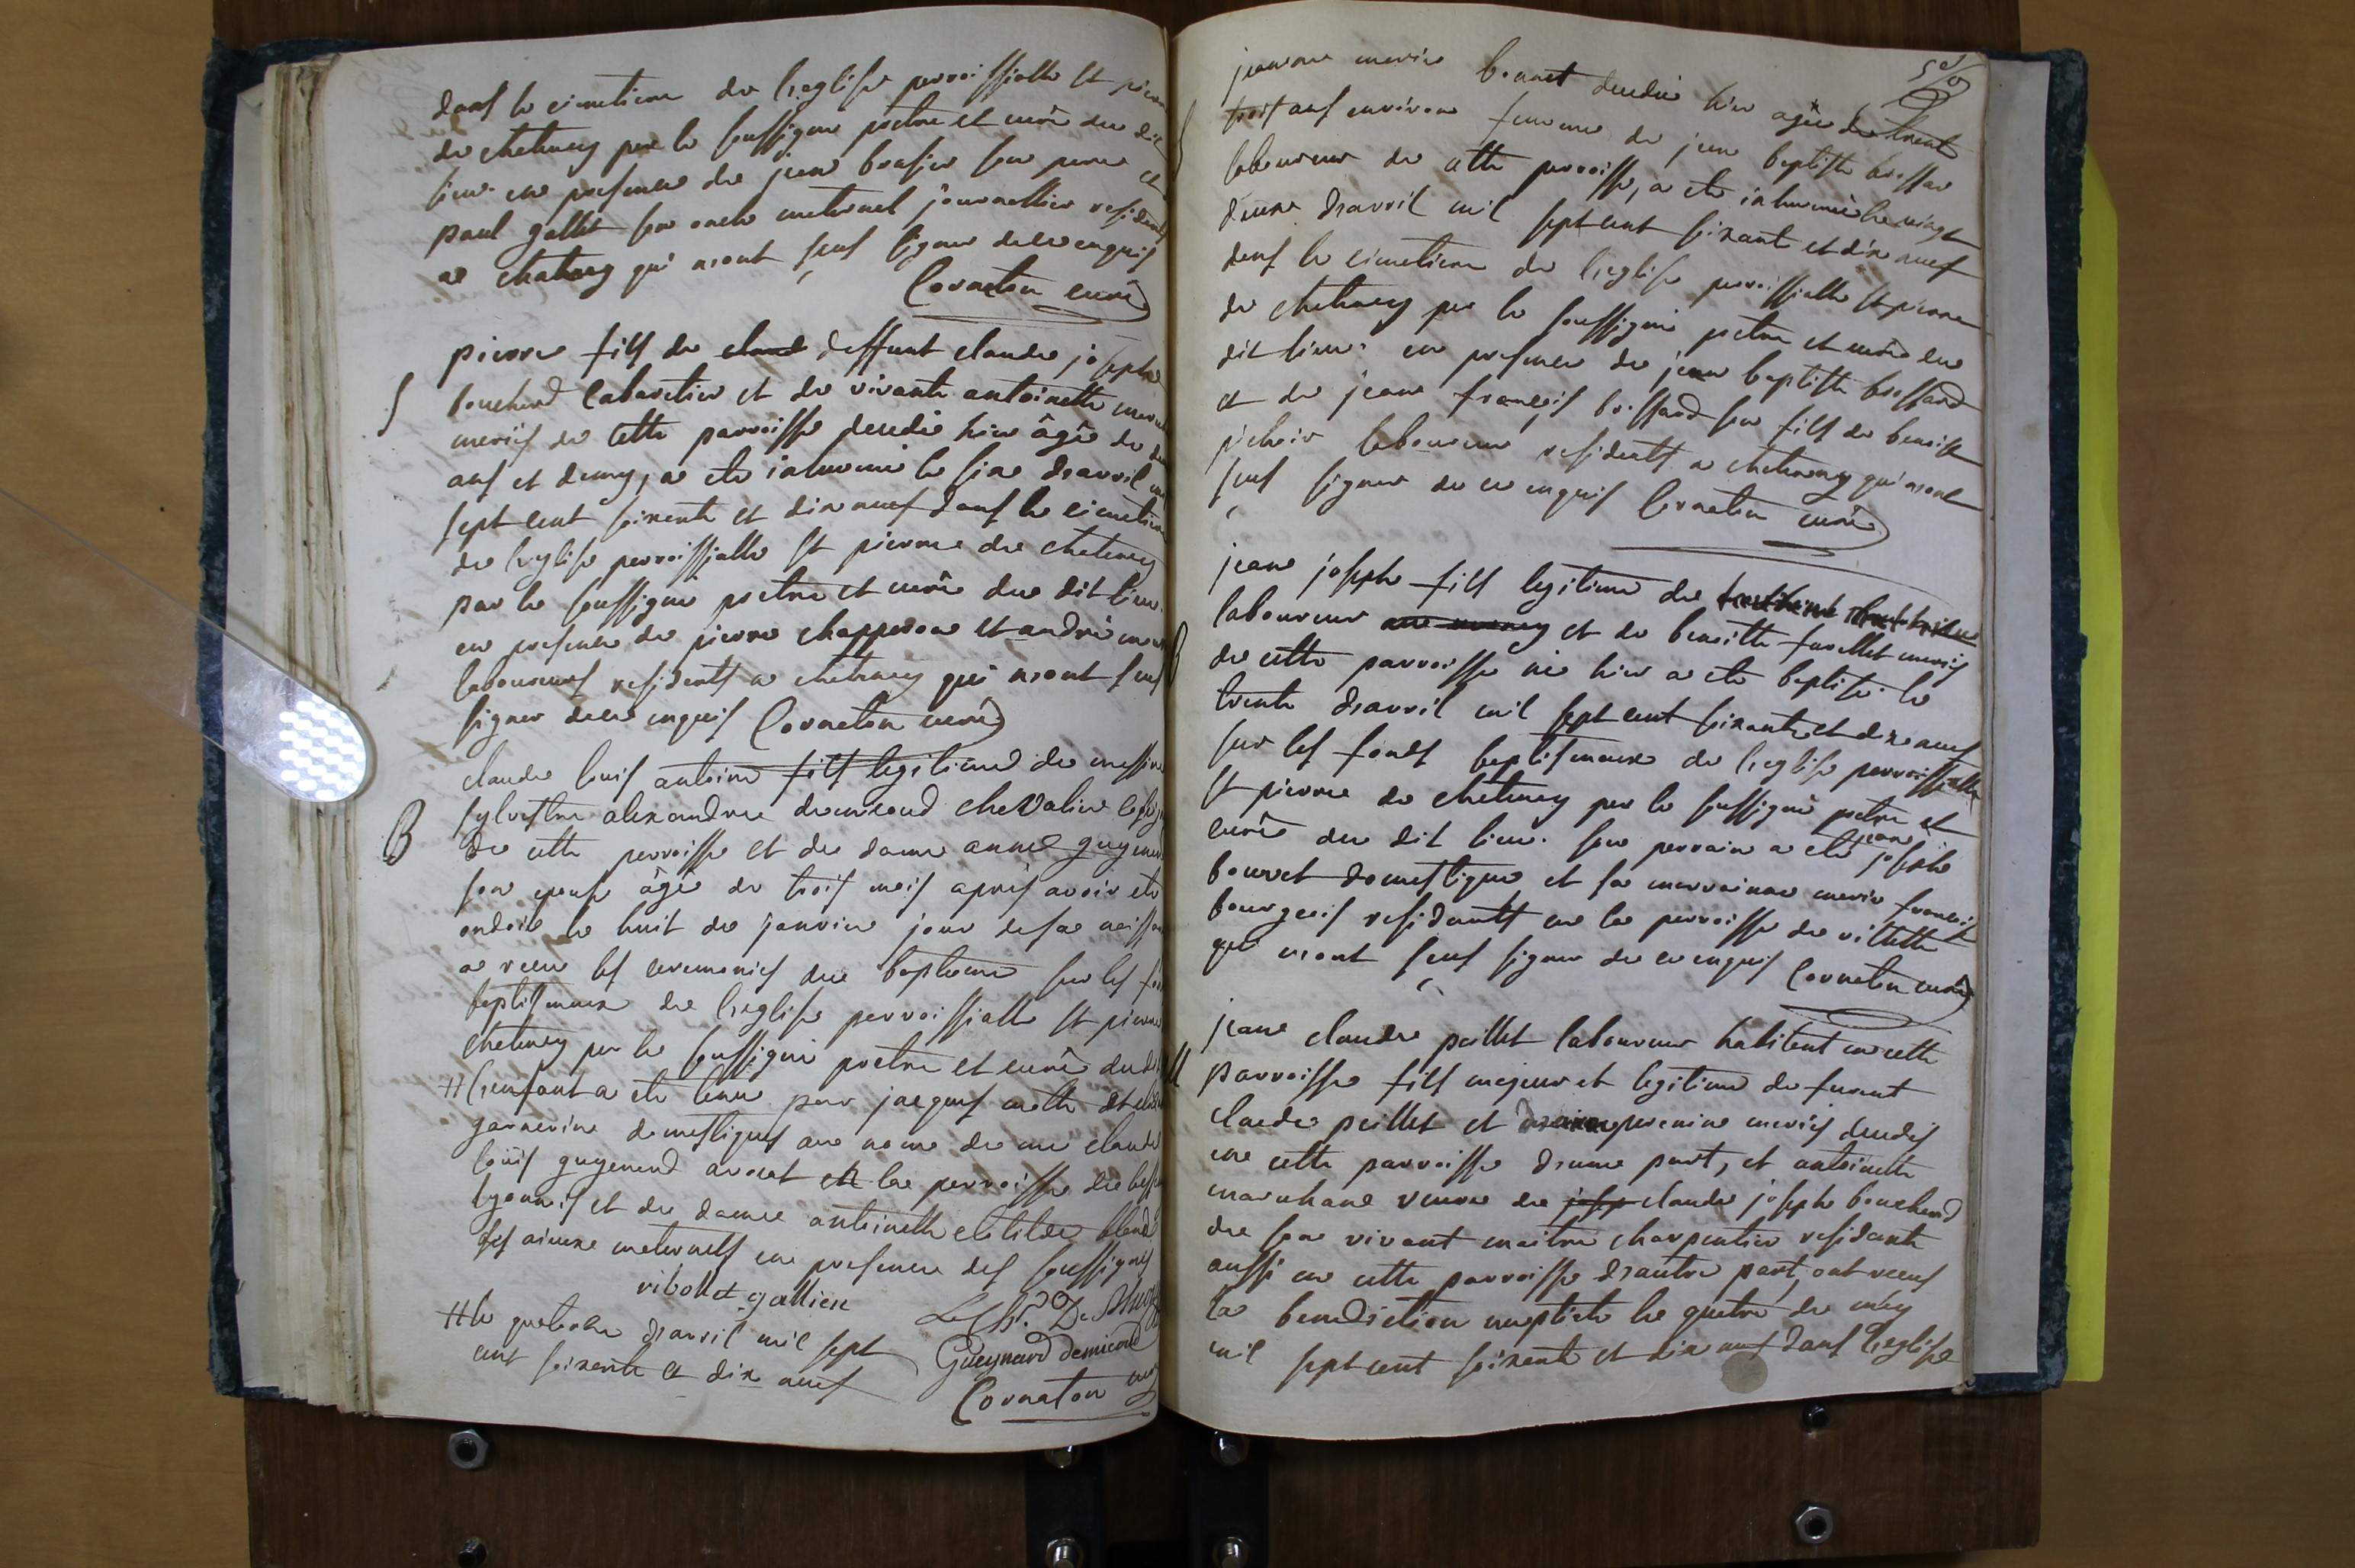 dans le cimetiere de l'eglise parroissialle st pierre
de chatenay par le soussigné pretre et curé du dit
lieu. en presence de jean brasier son pere et
paul gallet son oncle maternel journallier residents
a chatenay qui n'ont sçeus signer de ce enquis
Cornaton curé
pierre fils de claud deffunt claude joseph
bouchard Cabaretier et de vivante antoinette
mariés de cette parroisse decedé hier âgé de
ans et demy, a eté inhumé le six d'avril mil
sept cent soixante et dix neuf dans le cimetiere
de l'eglise parroissialle st pierre de chatenay
par le soussigné pretre et curé du dit lieu.
en presence de pierre chapperon et andré
laboureurs residents a chatenay qui n'ont sçeus
signer de ce enquis Cornaton curé
S
claude louis antoine fils legitime de messire
sylvestre alexandre chevalier
de cette parroisse et de dame anne
son epouse âgé de trois mois aprés avoir eté
ondoié le huit de janvier jour de sa naissance
a reçu les ceremonies du bapteme sur les
baptismaux de l'eglise parroissialle st pierre
chatenay par le soussigné pretre et curé dudit
B
# l'enfant a eté tenu par jacques et
domestiques au nom de mr claude
louis guyenard avocat en la parroisse de
lyonnois et de dame antoinette clotilde
ses aieux maternels en presence des soussignés
ribollet gallien
Le Ch. De
# le quatorze d'avril mil sept
cent soixante et dix neuf
Cornaton curé
jeanne marie bonnet decedée hier agée de trente
trois ans environ femme de jean baptiste brossard
laboureur de cette parroisse, a eté inhumée le vingt
deux d'avril mil sept cent soixante et dix neuf
dans le cimetiere de l'eglise parroissialle st pierre
de chatenay par le soussigné pretre et curé du
dit lieu. en presence de jean baptiste brossard
et de jean françois brossard son fils de benoist
pichoir laboureur residents a chatenay qui n'ont
sçeus signer de ce enquis Cornaton curé
jean joseph fils legitime de
laboureur et de benoitte furellet mariés
de cette parroisse né hier a eté baptisé le
trente d'avril mil sept cent soixante et dix neuf
sur les fonds baptismaux de l'eglise parroissialle
st pierre de chatenay par le soussigné pretre et
curé du dit lieu. son parrain a eté jean joseph
bouvet domestique et sa marrainne marie françoise
bourgeois residants en la parroisse de villette
qui n'ont sçeus signer de ce enquis Cornaton curé
B
jean claude paillet laboureur habitant en cette
parroisse fils majeur et legitime de furent
claude paillet et mariés decedés
en cette parroisse d'une part, et antoinette
marchand veuve de josep claude joseph bouchard
de son vivant maitre charpentier residante
aussi en cette parroisse d'autre part, ont receus
la benediction nuptiale le quatre de may
mil sept cent soixante et dix neuf dans l'eglise